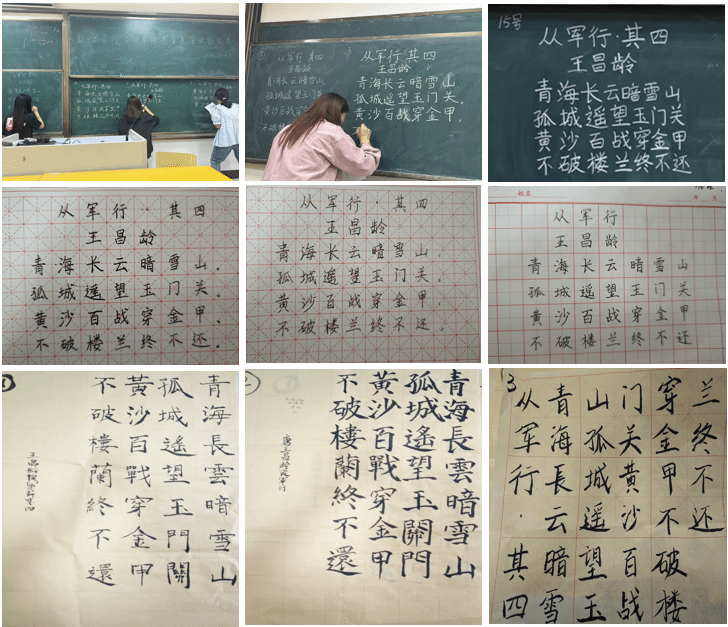 从军行 其四
王昌龄
青海长云暗雪山
孤城遥望玉门关
黄沙百战
不破
从军行·其四
王昌龄
青海长云暗雪山
孤城遥望玉门关.
黄沙百战穿金甲.
15号
从军行·其四
王昌龄
青海长云暗雪山
孤城遥望玉门关
黄沙百战穿金甲
不破楼兰终不还
从军行·其四
王昌龄
青海长云暗雪山。
孤城遥望玉门关。
黄沙百战穿金甲、
不破楼兰终不还。
从军行·其四
王昌龄
青海长云暗雪山.
孤城遥望玉门关.
黄沙百战穿金甲.
不破楼兰终不还。
姓名
年 月
从军行
王昌龄
青海长云暗雪山
孤城遥望玉门关
黄沙百战穿金甲
不破楼兰终不还
青海長雲暗雪山
孤城遙望玉門關
黃沙百戰穿金甲
不破樓蘭終不還
2
青海長雲暗雪山
孤城遙望玉關門
黃沙百戰穿金甲
不破樓蘭終不還
3
从军行·其四
青海长云暗雪
山孤城遥望玉
门关黄沙百战
穿金甲不破楼
兰终不还